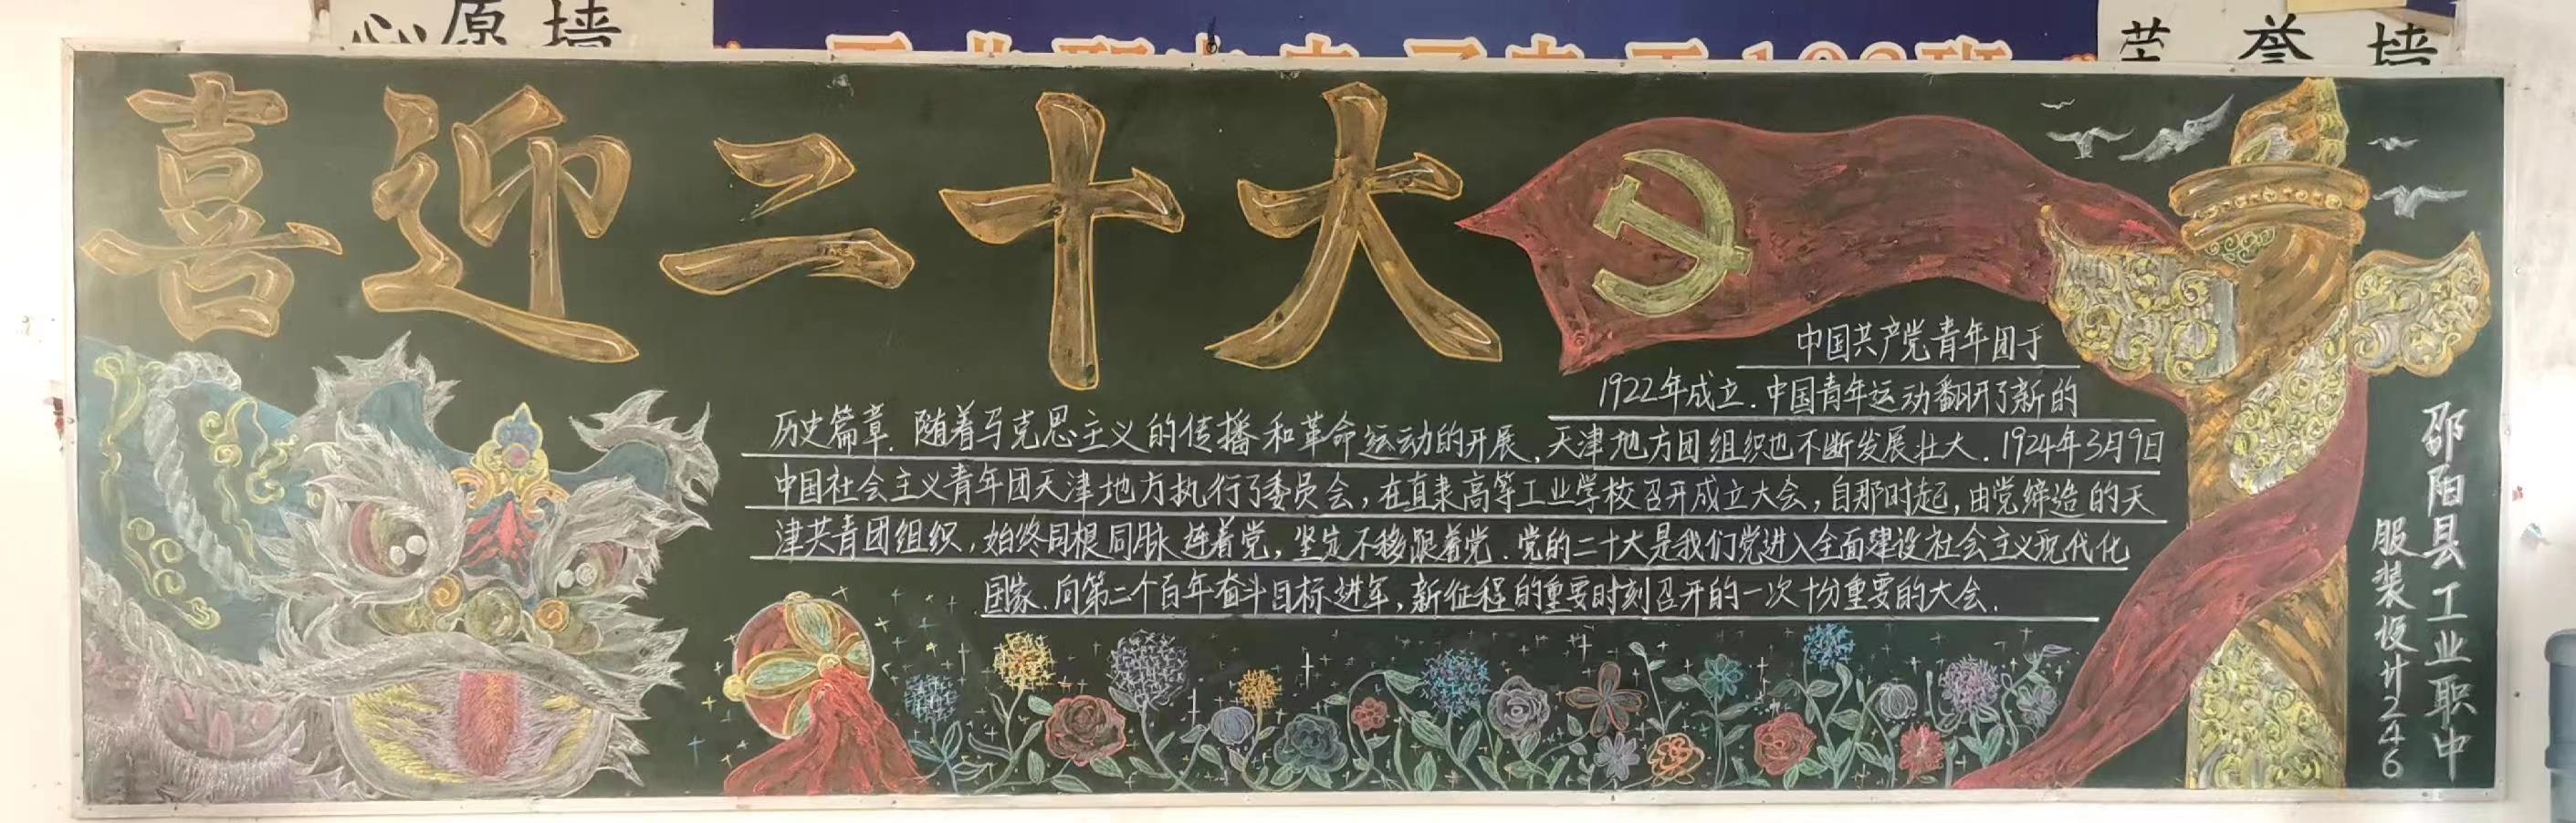 心原墙
102班
荣誉墙
喜迎二十大
中国共产党青年团于
1922年成立.中国青年运动翻开了新的
历史篇章.随着马克思主义的传播和革命运动的开展,天津地方团组织也不断发展壮大.1924年3月9日
中国社会主义青年团天津地方执行了委员会,在直隶高等工业学校召开成立大会,自那时起,由党缔造的天
津共青团组织,始终同根同脉连着党,坚定不移跟着党.党的二十大是我们党进入全面建设社会主义现代化
国家.向第二个百年奋斗目标进军,新征程的重要时刻召开的一次十分重要的大会.
邵阳县工业职中
服装设计246